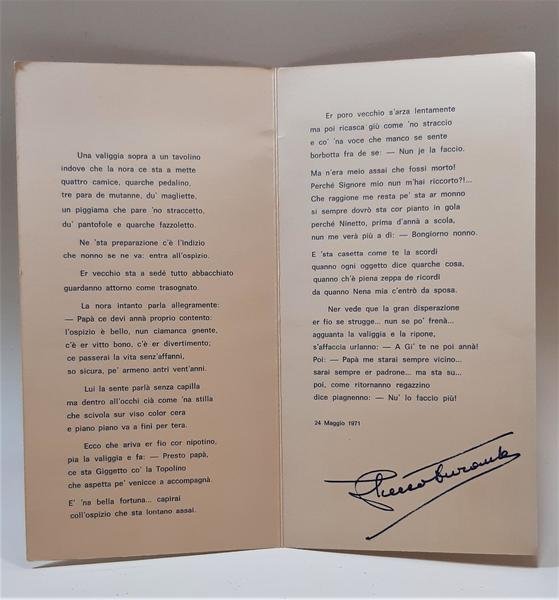 Una valiggia sopra a un tavolino
indove che la nora ce sta a mette
quattro camice, quarche pedalino,
tre para de mutanne, du' magliette,
un piggiama che pare 'no straccetto,
du' pantofole e quarche fazzoletto.
Ne 'sta preparazione c'è l'indizio
che nonno se ne va: entra all'ospizio.
Er vecchio sta a sedé tutto abbacchiato
guardanno attorno come trasognato.
La nora intanto parla allegramente:
— Papà ce devi annà proprio contento:
l'ospizio è bello, nun ciamanca gnente,
c'è er vitto bono, c'è er divertimento;
ce passerai la vita senz'affanni,
so sicura, pe' armeno antri vent'anni.
Lui la sente parlà senza capilla
ma dentro all'occhi cià come 'na stilla
che scivola sur viso color cera
e piano piano va a finì per tera.
Ecco che ariva er fio cor nipotino,
pia la valiggia e fa: — Presto papà,
ce sta Giggetto co' la Topolino
che aspetta pe' venicce a accompagnà.
E' 'na bella fortuna... capirai
coll'ospizio che sta lontano assai.
Er poro vecchio s'arza lentamente
ma poi ricasca giù come 'no straccio
e co' 'na voce che manco se sente
borbotta fra de se: — Nun je la faccio.
Ma n'era meio assai che fossi morto!
Perché Signore mio nun m'hai riccorto?!...
Che raggione me resta pe' sta ar monno
si sempre dovrò sta cor pianto in gola
perché Ninetto, prima d'annà a scola,
nun me verà più a dì: — Bongiorno nonno.
E 'sta casetta come te la scordi
quanno ogni oggetto dice quarche cosa,
quanno ch'è piena zeppa de ricordi
da quanno Nena mia c'entrò da sposa.
Ner vede che la gran disperazione
er fio se strugge... nun se po' frenà...
agguanta la valiggia e la ripone,
s'affaccia urlanno: — A Gi' te ne poi annà!
Poi: — Papà me starai sempre vicino...
sarai sempre er padrone... ma sta su...
poi, come ritornanno regazzino
dice piagnenno: — Nu' lo faccio più!
24 Maggio 1971